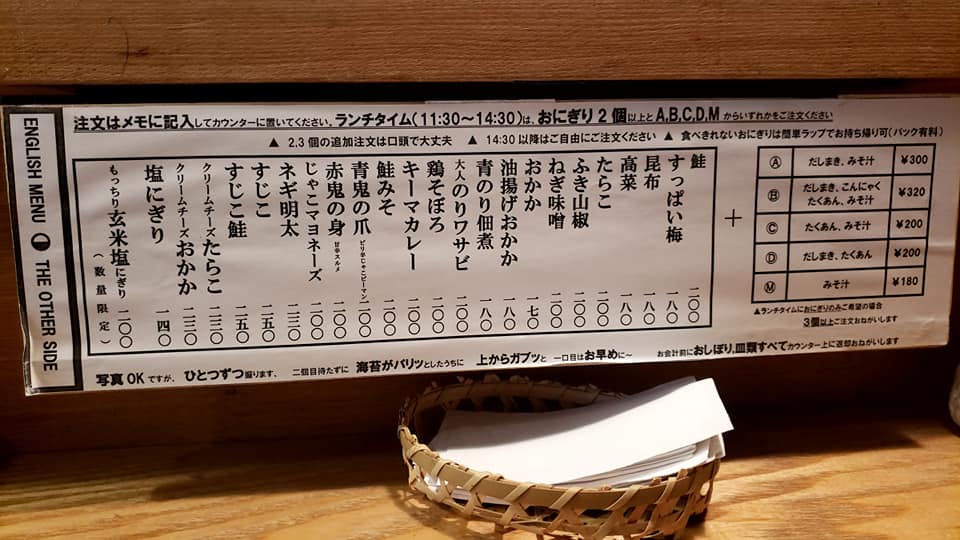 ENGLISH MENU THE OTHER SIDE
注文はメモに記入してカウンターに置いてください。ランチタイム(11:30～14:30)は、おにぎり2個以上とA,B,C,D,Mからいずれかをご注文ください
▲ 2,3個の追加注文は口頭で大丈夫 ▲ 14:30以降はご自由にご注文ください ▲ 食べきれないおにぎりは簡単ラップでお持ち帰り可(パック有料)
鮭 二〇〇
すっぱい梅 一八〇
昆布 一八〇
高菜 一八〇
たらこ 二〇〇
ふき山椒 二〇〇
ねぎ味噌 二〇〇
おかか 一七〇
油揚げおかか 一八〇
青のり佃煮 一八〇
大人のりワサビ 二〇〇
キーマカレー 二〇〇
鶏そぼろ 二〇〇
鮭みそ 二〇〇
青鬼の爪 ピリ辛じゃこピーマン 二〇〇
赤鬼の身 甘辛スルメ 二〇〇
じゃこマヨネーズ 二〇〇
ネギ明太 二三〇
すじこ 二五〇
すじこ鮭 二五〇
クリームチーズたらこ 二三〇
クリームチーズおかか 二三〇
塩にぎり 一四〇
もっちり玄米塩にぎり(数量限定) 二〇〇
+
Ⓐ だしまき、みそ汁 ¥300
Ⓑ だしまき、こんにゃく
たくあん、みそ汁 ¥320
Ⓒ たくあん、みそ汁 ¥200
Ⓓ だしまき、たくあん ¥200
Ⓜ みそ汁 ¥180
▲ランチタイムにおにぎりのみご希望の場合
3個以上ご注文おねがいします
写真OKですが、ひとつずつ握ります、二個目待たずに 海苔がパリッとしたうちに 上からガブッと 一口目はお早めに～ お会計前におしぼり,皿類すべてカウンター上に返却おねがいします